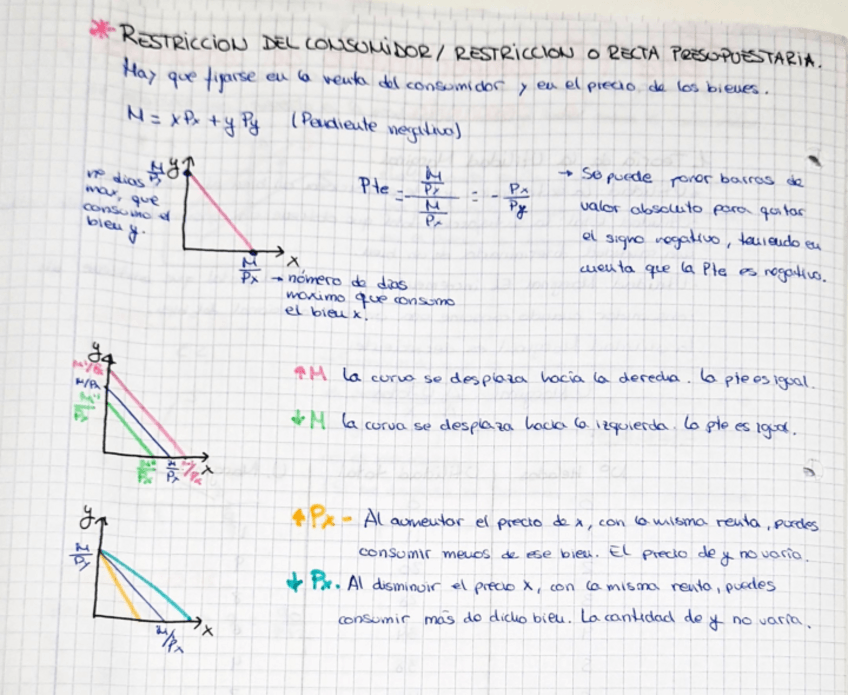 * RESTRICCION DEL CONSUMIDOR / RESTRICCION O RECTA PRESUPUESTARIA.
Hay que fijarse en la renta del consumidor y en el precio de los bienes.
M = xPx + yPy (Pendiente negativa)
y
M/Py
nº dias
max, que
consumo el
bien y.
x
M/Px → número de dias
maximo que consumo
el bien x.
Pte = - (M/Py)/(M/Px) = - Px/Py
→ Se puede poner barras de
valor absoluto para quitar
el signo negativo, teniendo en
cuenta que la Pte es negativa.
y
M'/Py
M/Py
M''/Py
M''/Px M/Px M'/Px x
↑M La curva se desplaza hacia la derecha. La pte es igual.
↓M La curva se desplaza hacia la izquierda. La pte es igual.
y
M/Py
M/Px x
↑Px - Al aumentar el precio de x, con la misma renta, puedes
consumir menos de ese bien. El precio de y no varia.
↓Px. Al disminuir el precio x, con la misma renta, puedes
consumir más de dicho bien. La cantidad de y no varía.